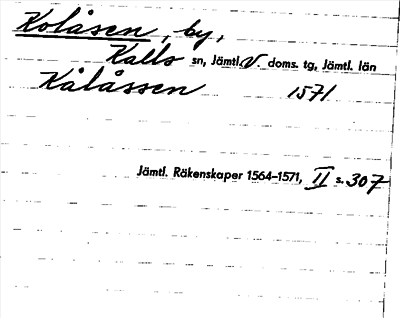 Kolåsen, by,
Kalls sn, Jämtl. V doms. tg, Jämtl. län
Kålåssen 1571
Jämtl. Räkenskaper 1564-1571, II s. 307